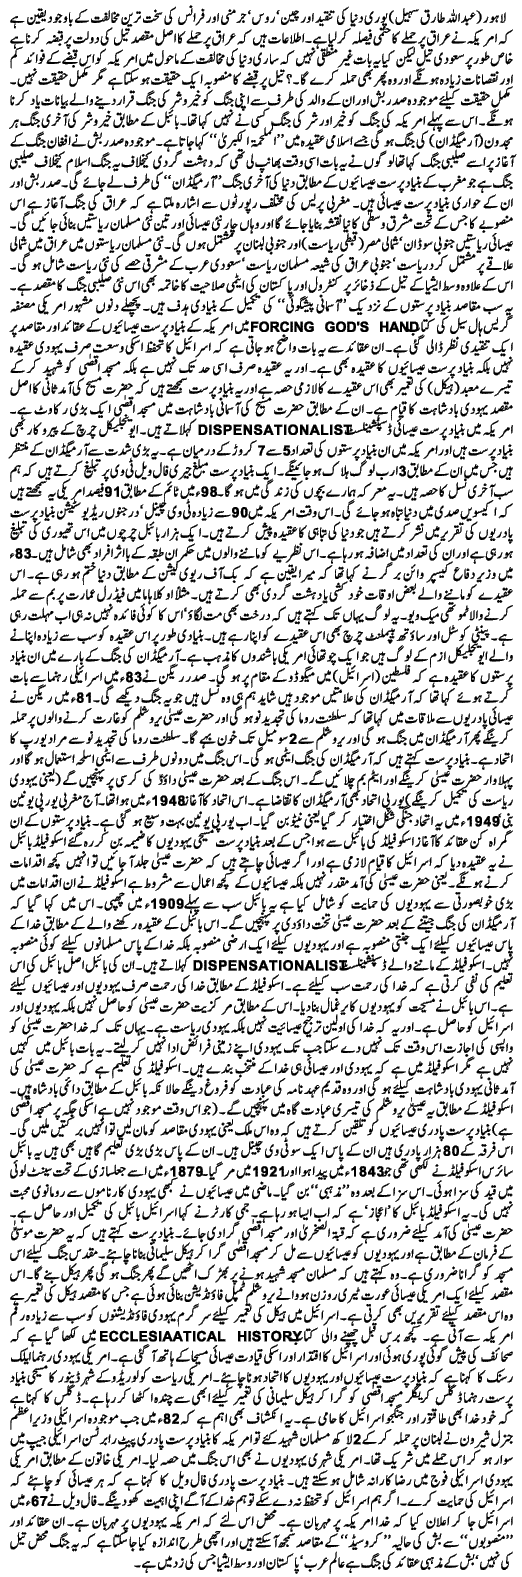 لاہور (عبداللہ طارق سہیل) پوری دنیا کی تنقید اور چین‘ روس‘ جرمنی اور فرانس کی سخت ترین مخالفت کے باوجود یقین ہے
کہ امریکہ نے عراق پر حملے کا حتمی فیصلہ کر لیا ہے۔ اطلاعات ہیں کہ عراق پر حملے کا اصل مقصد تیل کی دولت پر قبضہ کرنا ہے
خاص طور پر سعودی تیل لیکن کیا یہ بات غیر منطقی نہیں کہ ساری دنیا کی مخالفت کے ماحول میں امریکہ کو اس قبضے کے فوائد کم
اور نقصانات زیادہ ہونگے اور وہ پھر بھی حملہ کرے گا۔؟ تیل پر قبضے کا منصوبہ ایک حقیقت ہو سکتا ہے مگر مکمل حقیقت نہیں۔
مکمل حقیقت کیلئے موجودہ صدر بش اور ان کے والد کی طرف سے اپنی جنگ کو خیر و شر کی جنگ قرار دینے والے بیانات یاد کرنا
ہونگے۔ اس سے پہلے امریکہ کی جنگ کو خیر اور شر کی جنگ کسی نے نہیں کہا تھا۔ بائبل کے مطابق خیر و شر کی آخری جنگ ہر
مجدون (آرمیگڈان) کی جنگ ہو گی جسے اسلامی عقیدہ میں ’’الملحمۃ الکبریٰ‘‘ کہا جاتا ہے۔ موجودہ صدر بش نے افغان جنگ کے
آغاز پر اسے صلیبی جنگ کہا تھا لوگوں نے یہ بات اسی وقت بھانپ لی تھی کہ دہشت گردی کیخلاف یہ جنگ اسلام کیخلاف صلیبی
جنگ ہے جو مغرب کے بنیاد پرست عیسائیوں کے مطابق دنیا کی آخری جنگ ’’آرمیگڈان‘‘ کی طرف لے جائے گی۔ صدر بش اور
ان کے حواری بنیاد پرست عیسائی ہیں۔ مغربی پریس کی مختلف رپورٹوں سے اشارہ ملتا ہے کہ عراق کی جنگ آغاز ہے اس
منصوبے کا جس کے تحت مشرق وسطیٰ کا نیا نقشہ بنایا جائے گا اور وہاں چار نئی عیسائی اور تین نئی مسلمان ریاستیں بنائی جائیں گی۔
عیسائی ریاستیں جنوبی سوڈان‘ شمالی مصر (قبطی ریاست) اور جنوبی لبنان پر مشتمل ہوں گی۔ نئی مسلمان ریاستوں میں عراق میں شمالی
علاقے پر مشتمل کرد ریاست‘ جنوبی عراق کی شیعہ مسلمان ریاست‘ سعودی عرب کے مشرقی حصے کی نئی ریاست شامل ہو گی۔
اس کے علاوہ وسط ایشیا کے تیل کے ذخائر پر کنٹرول اور پاکستان کی ایٹمی صلاحیت کا خاتمہ بھی اس نئی صلیبی جنگ کا مقصد ہے۔
یہ سب مقاصد بنیاد پرستوں کے نزدیک ’’آسمانی پیشگوئی‘‘ کی تکمیل کے بنیادی ہدف ہیں۔ پچھلے دنوں مشہور امریکی مصنفہ
گریس ہال سیل کی کتاب FORCING GOD'S HAND میں امریکہ کے بنیاد پرست عیسائیوں کے عقائد اور مقاصد پر
ایک تنقیدی نظر ڈالی گئی ہے۔ ان عقائد سے یہ بات واضح ہو جاتی ہے کہ اسرائیل کا تحفظ اسکی وسعت صرف یہودی عقیدہ
نہیں بلکہ بنیاد پرست عیسائیوں کا عقیدہ بھی ہے۔ اور یہ عقیدہ صرف اسی حد تک نہیں ہے بلکہ مسجد اقصیٰ کو شہید کر کے
تیسرے معبد (ہیکل) کی تعمیر بھی اس عقیدے کا لازمی حصہ ہے اور یہ بنیاد پرست سمجھتے ہیں کہ حضرت مسیح کی آمد ثانی کا اصل
مقصد یہودی بادشاہت کا قیام ہے۔ ان کے مطابق حضرت مسیح کی آسمانی بادشاہت میں مسجد اقصیٰ ایک بڑی رکاوٹ ہے۔
امریکہ میں بنیاد پرست عیسائی DISPENSATIONALIST کہلاتے ہیں۔ ایونجلیکل چرچ کے پیروکار بھی
بنیاد پرست ہیں اور امریکہ میں ان بنیاد پرستوں کی تعداد 5 سے 7 کروڑ کے درمیان ہے۔ یہ بڑی شدت سے آرمیگڈان کے منتظر
ہیں جس میں ان کے مطابق 3 ارب لوگ ہلاک ہو جائینگے۔ ایک بنیاد پرست مبلغ جیری فال ویل ٹی وی پر تبلیغ کرتے ہیں کہ ہم
سب آخری نسل کا حصہ ہیں۔ یہ معرکہ ہمارے بچوں کی زندگی میں ہو گا۔ 98ء میں ٹائم کے مطابق 91 فیصد امریکی یہ سمجھتے ہیں
کہ اکیسویں صدی میں دنیا تباہ ہو جائے گی۔ اس وقت امریکہ میں 90 سے زیادہ ٹی وی چینل‘ درجنوں ریڈیو سٹیشن بنیاد پرست
پادریوں کی تقریریں نشر کرتے ہیں جو دنیا کی تباہی کا عقیدہ پیش کرتے ہیں۔ ایک ہزار بائبل چرچوں میں اس تھیوری کی تبلیغ
ہو رہی ہے اور ان کی تعداد میں اضافہ ہو رہا ہے۔ اس نظریے کو ماننے والوں میں حکمران طبقہ کے بااثر افراد بھی شامل ہیں۔ 83ء
میں وزیر دفاع کیسپر وائن برگر نے کہا تھا کہ میرا یقین ہے کہ بک آف ریویلیشن کے مطابق دنیا ختم ہو رہی ہے۔ اس
عقیدے کو ماننے والے بعض اوقات خودکشی یا دہشت گردی بھی کرتے ہیں۔ مثلاً اوکلاہاما میں فیڈرل عمارت پر بم سے حملہ
کرنے والا ٹموتھی میک ویو۔ یہ لوگ یہاں تک کہتے ہیں کہ درخت بھی مت لگاؤ‘ اس کا کوئی فائدہ نہیں نہ ہی اب مہلت رہی
ہے۔ پینٹی کوسٹل اور ساؤتھ بپٹسٹ چرچ بھی اس عقیدے کو اپنا رہے ہیں۔ بنیادی طور پر اس عقیدہ کو سب سے زیادہ اپنانے
والے ایونجلیکل ازم کے لوگ ہیں جو ایک چوتھائی امریکی باشندوں کا مذہب ہے۔ آرمیگڈان کی جنگ کے بارے میں ان بنیاد
پرستوں کا عقیدہ ہے کہ یہ فلسطین (اسرائیل) میں میگوڈو کے مقام پر ہو گی۔ صدر ریگن نے 83ء میں اسرائیلی رہنما سے بات
کرتے ہوئے کہا تھا کہ آرمیگڈان کی علامتیں موجود ہیں شاید ہم ہی وہ نسل ہیں جو یہ جنگ دیکھے گی۔ 81ء میں ریگن نے
عیسائی پادریوں سے ملاقات میں کہا تھا کہ سلطنت روما کی تجدید نو ہو گی اور حضرت عیسیٰ یروشلم کو غارت کرنے والوں پر حملہ
کرینگے پھر آرمیگڈان میں جنگ ہو گی اور یروشلم سے 2 سو میل تک خون بہے گا۔ سلطنت روما کی تجدید نو سے مراد یورپ کا
اتحاد ہے۔ بنیاد پرست کہتے ہیں کہ آرمیگڈان کی جنگ ایٹمی ہو گی۔ اس جنگ میں دونوں طرف سے ایٹمی اسلحہ استعمال ہو گا اور
پہلا وار حضرت عیسیٰ کرینگے اور ایٹم بم چلائیں گے۔ اس جنگ کے بعد حضرت عیسیٰ داؤدؑ کی کرسی پر پہنچیں گے (یعنی یہودی
ریاست کی تکمیل کرینگے) یورپی اتحاد بھی آرمیگڈان کا تقاضا ہے۔ اس اتحاد کا آغاز 1948ء میں ہوا تھا۔ آج مغربی یورپی یونین
بنی‘ 1949ء میں یہ اتحاد جنگی شکل اختیار کر گیا یعنی نیٹو بن گیا۔ اب یورپی یونین بہت وسیع ہو گئی ہے۔ بنیاد پرستوں کے ان
گمراہ کن عقائد کا آغاز اسکوفیلڈ کی بائبل سے ہوا جس کے بعد بنیاد پرست مسیحی یہودیوں کا ضمیمہ بن کر رہ گئے اسکوفیلڈ بائبل
نے یہ عقیدہ دیا کہ اسرائیل کا قیام لازمی ہے اور اگر عیسائی چاہتے ہیں کہ حضرت عیسیٰ جلد آ جائیں تو انہیں کچھ اقدامات
کرنے ہونگے۔ یعنی حضرت عیسیٰ کی آمد مقدر نہیں بلکہ عیسائیوں کے کچھ اعمال سے مشروط ہے اسکوفیلڈ نے ان اقدامات میں
بڑی خوبصورتی سے یہودیوں کی حمایت کو شامل کیا ہے یہ بائبل سب سے پہلے 1909ء میں چھپی۔ اس میں کہا گیا کہ
آرمیگڈان کی جنگ جیتنے کے بعد حضرت عیسیٰ تخت داؤدی پر پہنچیں گے۔ اس بائبل کے عقیدہ رکھنے والے کے مطابق خدا کے
پاس عیسائیوں کیلئے ایک جنتی منصوبہ ہے اور یہودیوں کیلئے ایک ارضی منصوبہ بلکہ خدا کے پاس مسلمانوں کیلئے کوئی منصوبہ
نہیں۔ اسکوفیلڈ کے ماننے والے DISPENSATIONALIST کہلاتے ہیں۔ ان کی بائبل اصل بائبل کی اس
تعلیم کی نفی کرتی ہے کہ خدا کی رحمت سب کیلئے ہے۔ اسکوفیلڈ کے مطابق خدا کی رحمت صرف یہودیوں اور عیسائیوں کیلئے
ہے۔ اس بائبل نے مسیحیت کو یہودیوں کا یرغمال بنا دیا۔ اس کے مطابق مرکزیت حضرت عیسیٰ کو حاصل نہیں بلکہ یہودیوں اور
اسرائیل کو حاصل ہے۔ اور یہ کہ خدا کی اولین ترجیح عیسائیت نہیں بلکہ یہودی ریاست ہے۔ یہاں تک کہ خدا حضرت عیسیٰ کو
واپسی کی اجازت اس وقت تک نہیں دے سکتا جب تک یہودی اپنے زمینی فرائض ادا نہیں کر لیتے۔ یہ بات بائبل میں کہیں
نہیں ہے مگر اسکوفیلڈ میں ہے کہ یہودی اور عیسائی ہی خدا کے منتخب بندے ہیں۔ اسکوفیلڈ کی تعلیم ہے کہ حضرت عیسیٰ کی
آمد ثانی یہودی بادشاہت کیلئے ہو گی اور وہ قدیم عہد نامہ کی عبادت کو فروغ دینگے حالانکہ بائبل کے مطابق وہ دائمی بادشاہ ہیں۔
اسکوفیلڈ کے مطابق یہ عیسیٰ یروشلم کی تیسری عبادت گاہ میں پہنچیں گے۔ (جو اس وقت موجود نہیں ہے اسکی جگہ پر مسجد اقصیٰ
ہے) بنیاد پرست پادری عیسائیوں کو تلقین کرتے ہیں کہ وہ اس ملک یعنی یہودی مقاصد کو مان لیں تو انہیں برکتیں ملیں گی۔
اس فرقہ کے 80 ہزار پادری ہیں ان کے پاس ایک سو ٹی وی چینل ہیں۔ ان کے پاس بڑی بڑی تعلیم گاہیں بھی ہیں یہ بائبل
سائرس اسکوفیلڈ نے لکھی تھی جو 1843ء میں پیدا ہوا اور 1921 میں مر گیا۔ 1879ء میں اسے جعلسازی کے تحت سینٹ لوئی
میں قید کی سزا ہوئی۔ اس سزا کے بعد وہ ’’مذہبی‘‘ بن گیا۔ ماضی میں عیسائیوں نے کبھی یہودی کارناموں سے رومانوی محبت
نہیں کی۔ یہ اسکوفیلڈ بائبل کا ’’اعجاز‘‘ ہے کہ اب ایسا ہو رہا ہے۔ جمی کارٹر نے کہا اسرائیل بائبل کی تکمیل اور حاصل ہے۔
حضرت عیسیٰ کی آمد کیلئے ضروری ہے کہ قبۃ الصخریٰ اور مسجد اقصیٰ گرا دی جائے۔ بنیاد پرست کہتے ہیں کہ یہ حضرت موسیٰؑ
کے فرمان کے مطابق ہے اور یہودیوں کو عیسائیوں سے مل کر مسجد اقصیٰ گرا کر ہیکل سلیمانی بنانا چاہئے۔ مقدس جنگ کیلئے اس
مسجد کو گرانا ضروری ہے۔ وہ کہتے ہیں کہ مسلمان مسجد شہید ہونے پر بھڑک اٹھیں گے پھر جنگ ہو گی پھر ہیکل بنے گا۔ اس
مقصد کیلئے ایک امریکی عیسائی عورت ٹیری روزن ہوو والے یروشلم ٹمپل فاؤنڈیشن بنائی ہوئی ہے جس کا مقصد ہیکل کی تعمیر ہے
وہ اس مقصد کیلئے تقریریں بھی کرتی ہے۔ اسرائیل میں ہیکل کی تعمیر کیلئے سرگرم یہودی فاؤنڈیشنوں کو سب سے زیادہ رقم
امریکہ سے آتی ہے۔ کچھ برس قبل چھپنے والی کتاب ECCLESIAATICAL HISTORY میں لکھا گیا ہے کہ
صحائف کی پیش گوئی پوری ہوئی اور اسرائیل کا اقتدار اور اسکی قیادت عیسائی مسیحا کے ہاتھ آ گئی ہے۔ امریکی یہودی رہنما ایلک
رسنک کا کہنا ہے کہ بنیاد پرست عیسائیوں اور یہودیوں کا اتحاد ہونا چاہئے۔ امریکی ریاست کولوریڈو کے شہر ڈینور کا مسیحی بنیاد
پرست رہنما ڈگلس کریگر مسجد اقصیٰ کو گرا کر ہیکل سلیمانی کی تعمیر کیلئے ابھی سے چندہ اکٹھا کر رہا ہے۔ ڈگلس کا کہنا ہے
کہ خود خدا بھی طاقتور اور جنگجو اسرائیل کا حامی ہے۔ یہ انکشاف بھی اہم ہے کہ 82ء میں جب موجودہ اسرائیلی وزیراعظم
جنرل شیرون نے لبنان پر حملہ کر کے 2 لاکھ مسلمان شہید کئے تو امریکہ کا بنیاد پرست پادری پیٹ رابرٹسن اسرائیلی جیپ میں
سوار ہو کر اس حملے میں شریک تھا۔ امریکی شہری یہودیوں نے بھی اس جنگ میں حصہ لیا۔ امریکی خاتون کے مطابق امریکی
یہودی اسرائیلی فوج میں رضاکارانہ شامل ہو سکتے ہیں۔ بنیاد پرست پادری فال ویل کا کہنا ہے کہ ہر عیسائی کو چاہئے کہ
اسرائیل کی حمایت کرے۔ اگر ہم اسرائیل کو تحفظ نہ دے سکے تو ہم خدا کے آگے اپنی اہمیت کھو دینگے۔ فال ویل نے 67ء میں
اسرائیل جا کر اعلان کیا کہ خدا امریکہ پر مہربان ہے۔ محض اس لئے کہ امریکہ یہودیوں پر مہربان ہے۔ ان عقائد اور
’’منصوبوں‘‘ سے بش کی حالیہ ’’کروسیڈ‘‘ کے مقاصد سمجھ آ سکتے ہیں اور اچھی طرح اندازہ کیا جا سکتا ہے کہ یہ جنگ محض تیل
کی نہیں‘ بش کے مذہبی عقائد کی جنگ ہے عالم عرب‘ پاکستان اور وسط ایشیا جس کی زد میں ہے۔